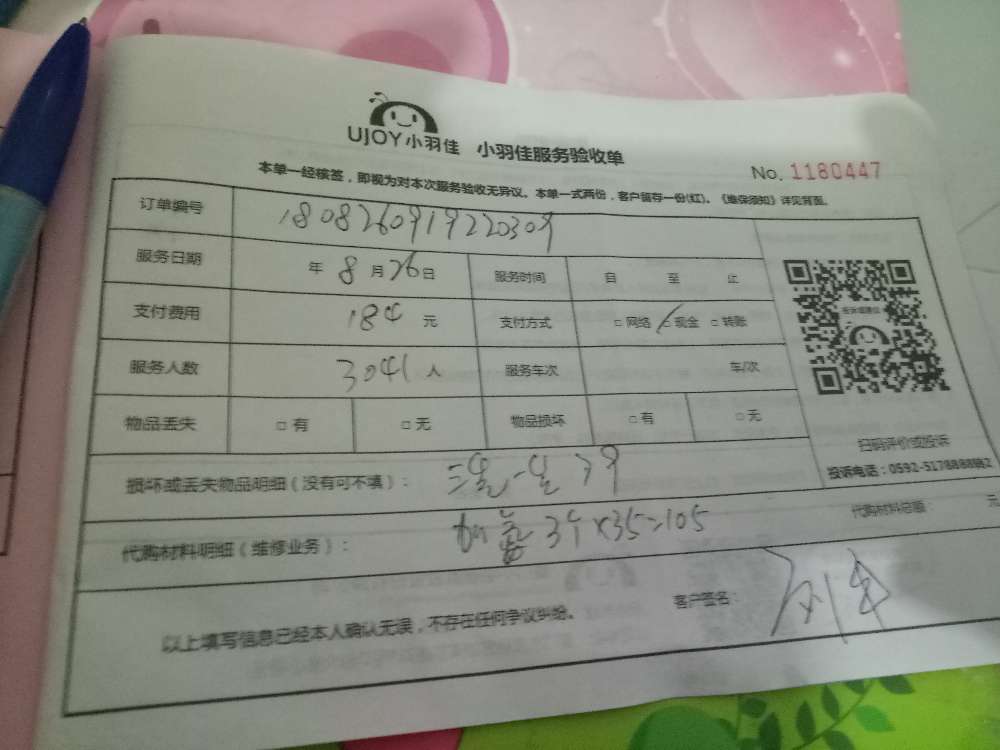 UJOY小羽佳 小羽佳服务验收单
No. 1180447
本单一经核签，即视为对本次服务验收无异议。本单一式两份，客户留存一份(红)。《维保须知》详见背面。
订单编号 1808260919220309
服务日期 年 8 月 26 日 服务时间 自 至 止
支付费用 184 元 支付方式 □ 网络 □ 现金 □ 转账
服务人数 3041 人 服务车次 车/次
物品丢失 □ 有 □ 无 物品损坏 □ 有 □ 无
扫码评价或投诉
投诉电话：0592-5178888转2
损坏或丢失物品明细（没有可不填）： 79
代购材料明细（维修业务）： 3个×35=105 代购材料总额： 元
以上填写信息已经本人确认无误，不存在任何争议纠纷。 客户签名：